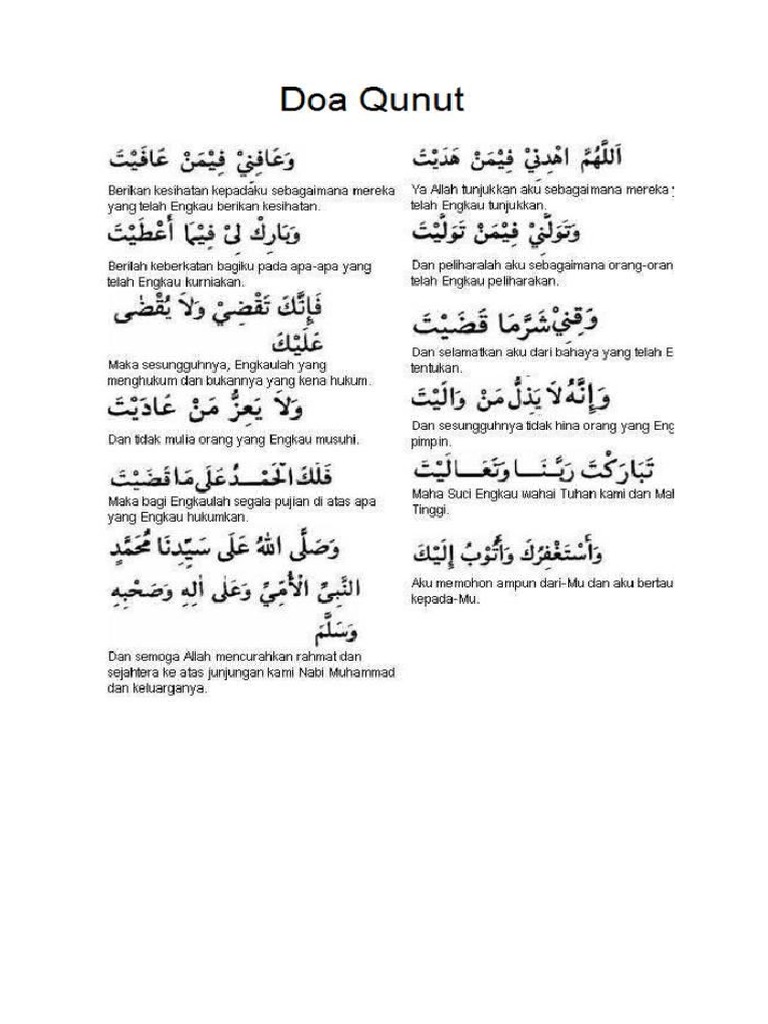 Doa Qunut
اَللَّهُمَّ اهْدِنِيْ فِيْمَنْ هَدَيْتَ
Ya Allah tunjukkan aku sebagaimana mereka
telah Engkau tunjukkan.
وَعَافِنِيْ فِيْمَنْ عَافَيْتَ
Berikan kesihatan kepadaku sebagaimana mereka
yang telah Engkau berikan kesihatan.
وَتَوَلَّنِيْ فِيْمَنْ تَوَلَّيْتَ
Dan peliharalah aku sebagaimana orang-oran
telah Engkau peliharakan.
وَبَارِكْ لِيْ فِيْمَا أَعْطَيْتَ
Berilah keberkatan bagiku pada apa-apa yang
telah Engkau kurniakan.
وَقِنِيْ شَرَّمَا قَضَيْتَ
Dan selamatkan aku dari bahaya yang telah E
tentukan.
فَإِنَّكَ تَقْضِيْ وَلاَ يُقْضٰى
عَلَيْكَ
Maka sesungguhnya, Engkaulah yang
menghukum dan bukannya yang kena hukum.
وَإِنَّهُ لاَ يَذِلُّ مَنْ وَالَيْتَ
Dan sesungguhnya tidak hina orang yang Eng
pimpin.
وَلاَ يَعِزُّ مَنْ عَادَيْتَ
Dan tidak mulia orang yang Engkau musuhi.
تَبَارَكْتَ رَبَّنَا وَتَعَالَيْتَ
Maha Suci Engkau wahai Tuhan kami dan Mal
Tinggi.
فَلَكَ الْحَمْدُ عَلَى مَا قَضَيْتَ
Maka bagi Engkaulah segala pujian di atas apa
yang Engkau hukumkan.
وَأَسْتَغْفِرُكَ وَأَتُوْبُ إِلَيْكَ
Aku memohon ampun dari-Mu dan aku bertau
kepada-Mu.
وَصَلَّى اللهُ عَلَى سَيِّدِنَا مُحَمَّدٍ
النَّبِيِّ الْأُمِّيِّ وَعَلٰى اٰلِهِ وَصَحْبِهِ
وَسَلَّمَ
Dan semoga Allah mencurahkan rahmat dan
sejahtera ke atas junjungan kami Nabi Muhammad
dan keluarganya.